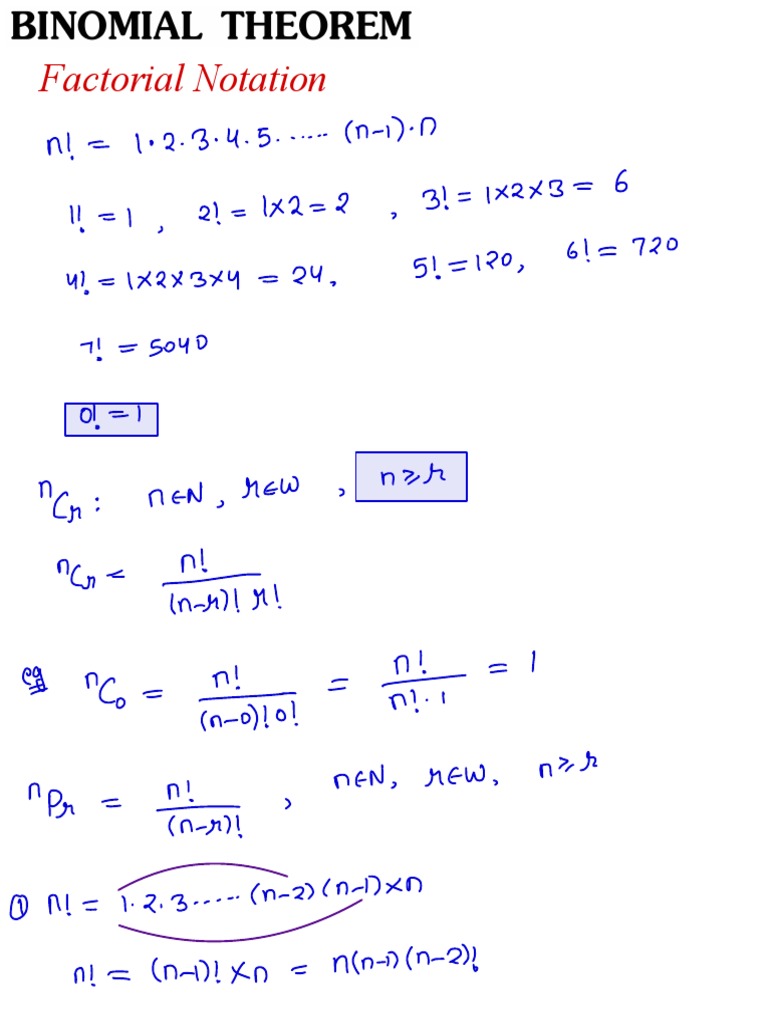 BINOMIAL THEOREM
Factorial Notation
n! = 1·2·3·4·5······(n-1)·n
1! = 1, 2! = 1×2 = 2, 3! = 1×2×3 = 6
4! = 1×2×3×4 = 24, 5! = 120, 6! = 720
7! = 5040
0! = 1
ⁿCᵣ: n∈N, r∈W, n≥r
ⁿCᵣ = n!/((n-r)! r!)
eg ⁿC₀ = n!/((n-0)! 0!) = n!/(n!·1) = 1
ⁿPᵣ = n!/(n-r)!, n∈N, r∈W, n≥r
① n! = 1·2·3·····(n-2)(n-1)×n
n! = (n-1)! ×n = n(n-1)(n-2)!